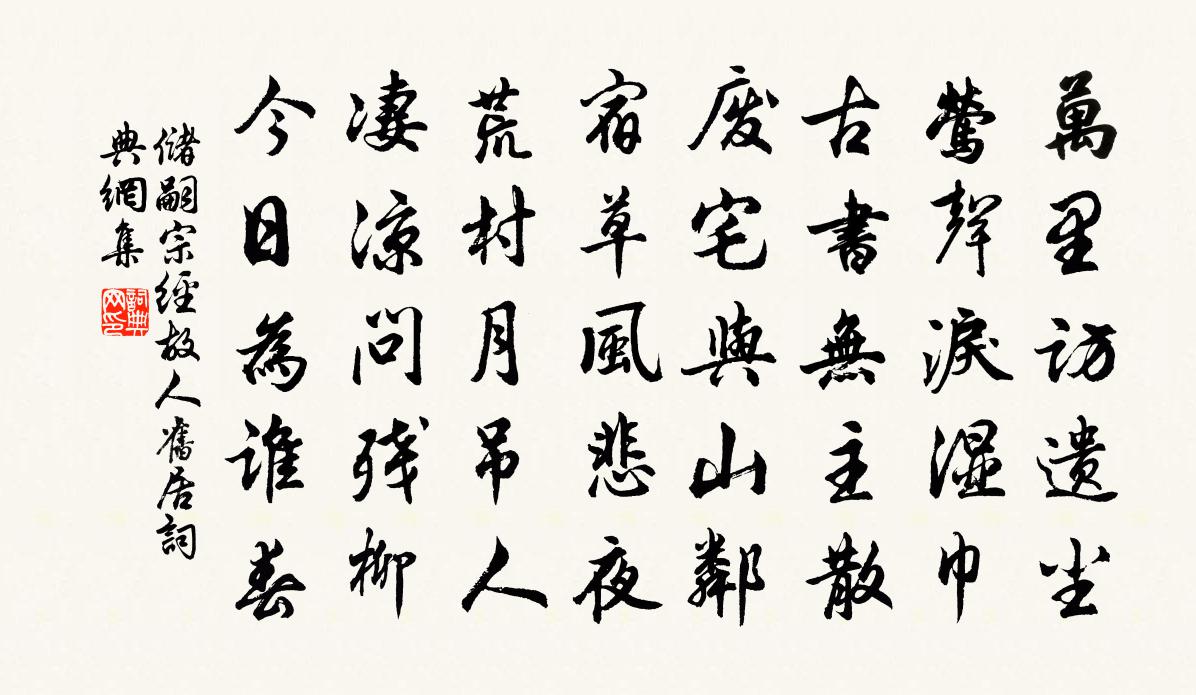 萬里訪遺尘
鶯聲淚湿巾
古書無主散
废宅與山鄰
宿草風悲夜
荒村月吊人
凄涼問残柳
今日為誰春
儲嗣宗經故人舊居詞
典網集
詞典
网印